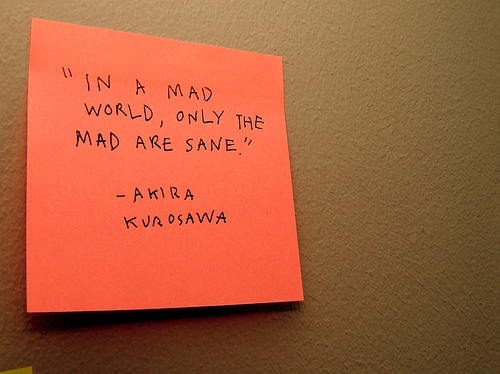 "IN A MAD
WORLD, ONLY THE
MAD ARE SANE."
-AKIRA
KUROSAWA